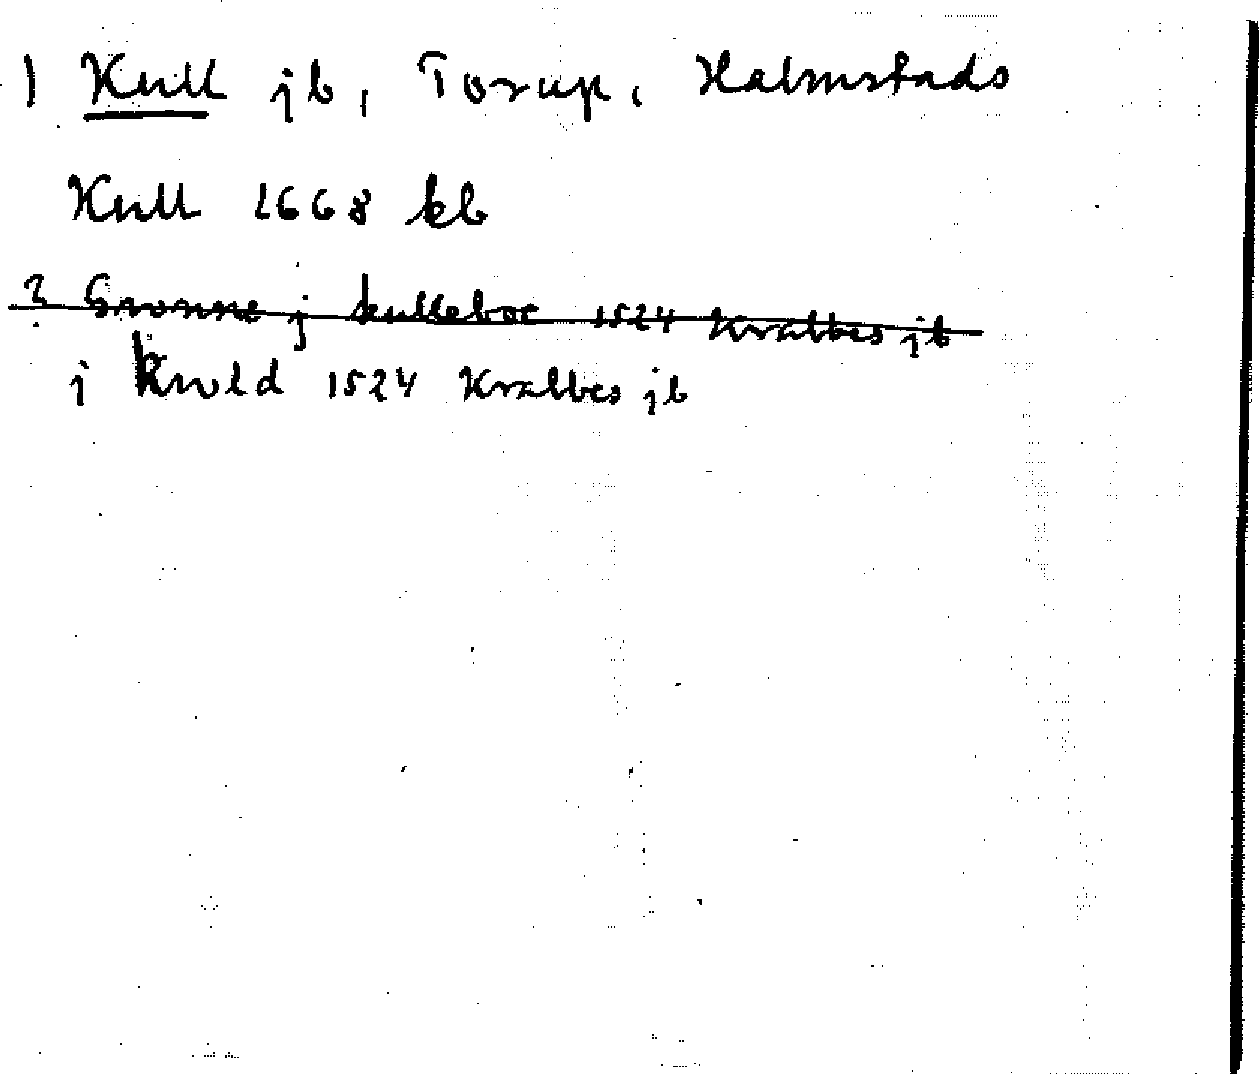 ) Kull jb, Torup, Halmstads
Kull 1668 kb
? Gronne j kulleboe 1524 Kralbes jb
j Kuld 1524 Kralbes jb